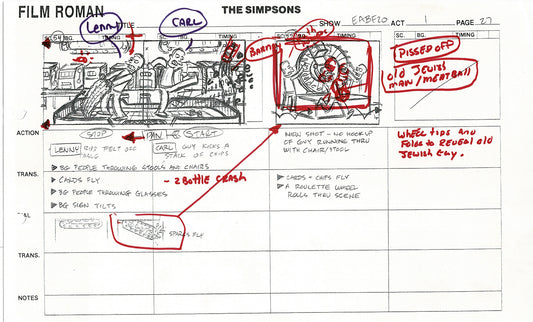 FILM ROMAN
THE SIMPSONS
TITLE
SHOW EABF20 ACT 1 PAGE 27
Lenny
CARL
SC. 54 BG. TIMING
BG. TIMING
BARNEY
SC. BG. TIMING
SC. BG. TIMING
PISSED OFF
Old Jewish
MAN/MEATBALL
ACTION
STOP
PAN
START
LENNY RIPS FELT OFF
CARL GUY KICKS A
STACK OF CHIPS
▶ BG PEOPLE THROWING STOOLS AND CHAIRS
NEW SHOT - NO HOOKUP
OF GUY RUNNING THRU
WITH CHAIR/STOOL
Wheel tips and
folds to reveal old
Jewish guy.
TRANS.
▶ CARDS FLY
- 2 BOTTLE CRASH
▶ BG PEOPLE THROWING GLASSES
▶ BG SIGN TILTS
▶ CARDS + CHIPS FLY
▶ A ROULETTE WHEEL
ROLLS THRU SCENE
SPARKS FLY
TRANS.
NOTES